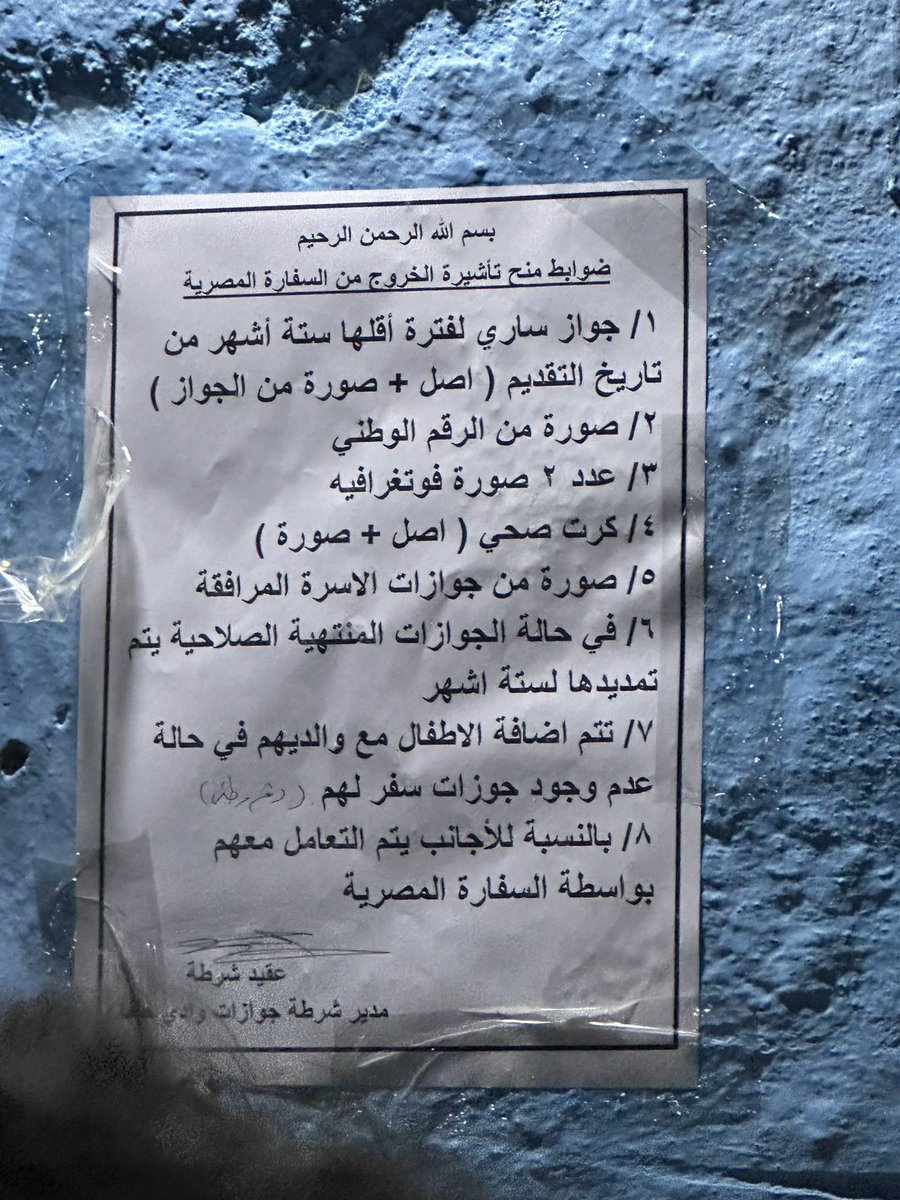 بسم الله الرحمن الرحيم
ضوابط منح تأشيرة الخروج من السفارة المصرية
١/ جواز ساري لفترة أقلها ستة أشهر من
تاريخ التقديم ( اصل + صورة من الجواز )
٢/ صورة من الرقم الوطني
٣/ عدد ٢ صورة فوتغرافيه
٤/ كرت صحي ( اصل + صورة )
٥/ صورة من جوازات الاسرة المرافقة
٦/ في حالة الجوازات المنتهية الصلاحية يتم
تمديدها لستة اشهر
٧/ تتم اضافة الاطفال مع والديهم في حالة
عدم وجود جوزات سفر لهم
٨/ بالنسبة للأجانب يتم التعامل معهم
بواسطة السفارة المصرية
عقيد شرطة
مدير شرطة جوازات وادي حلفا